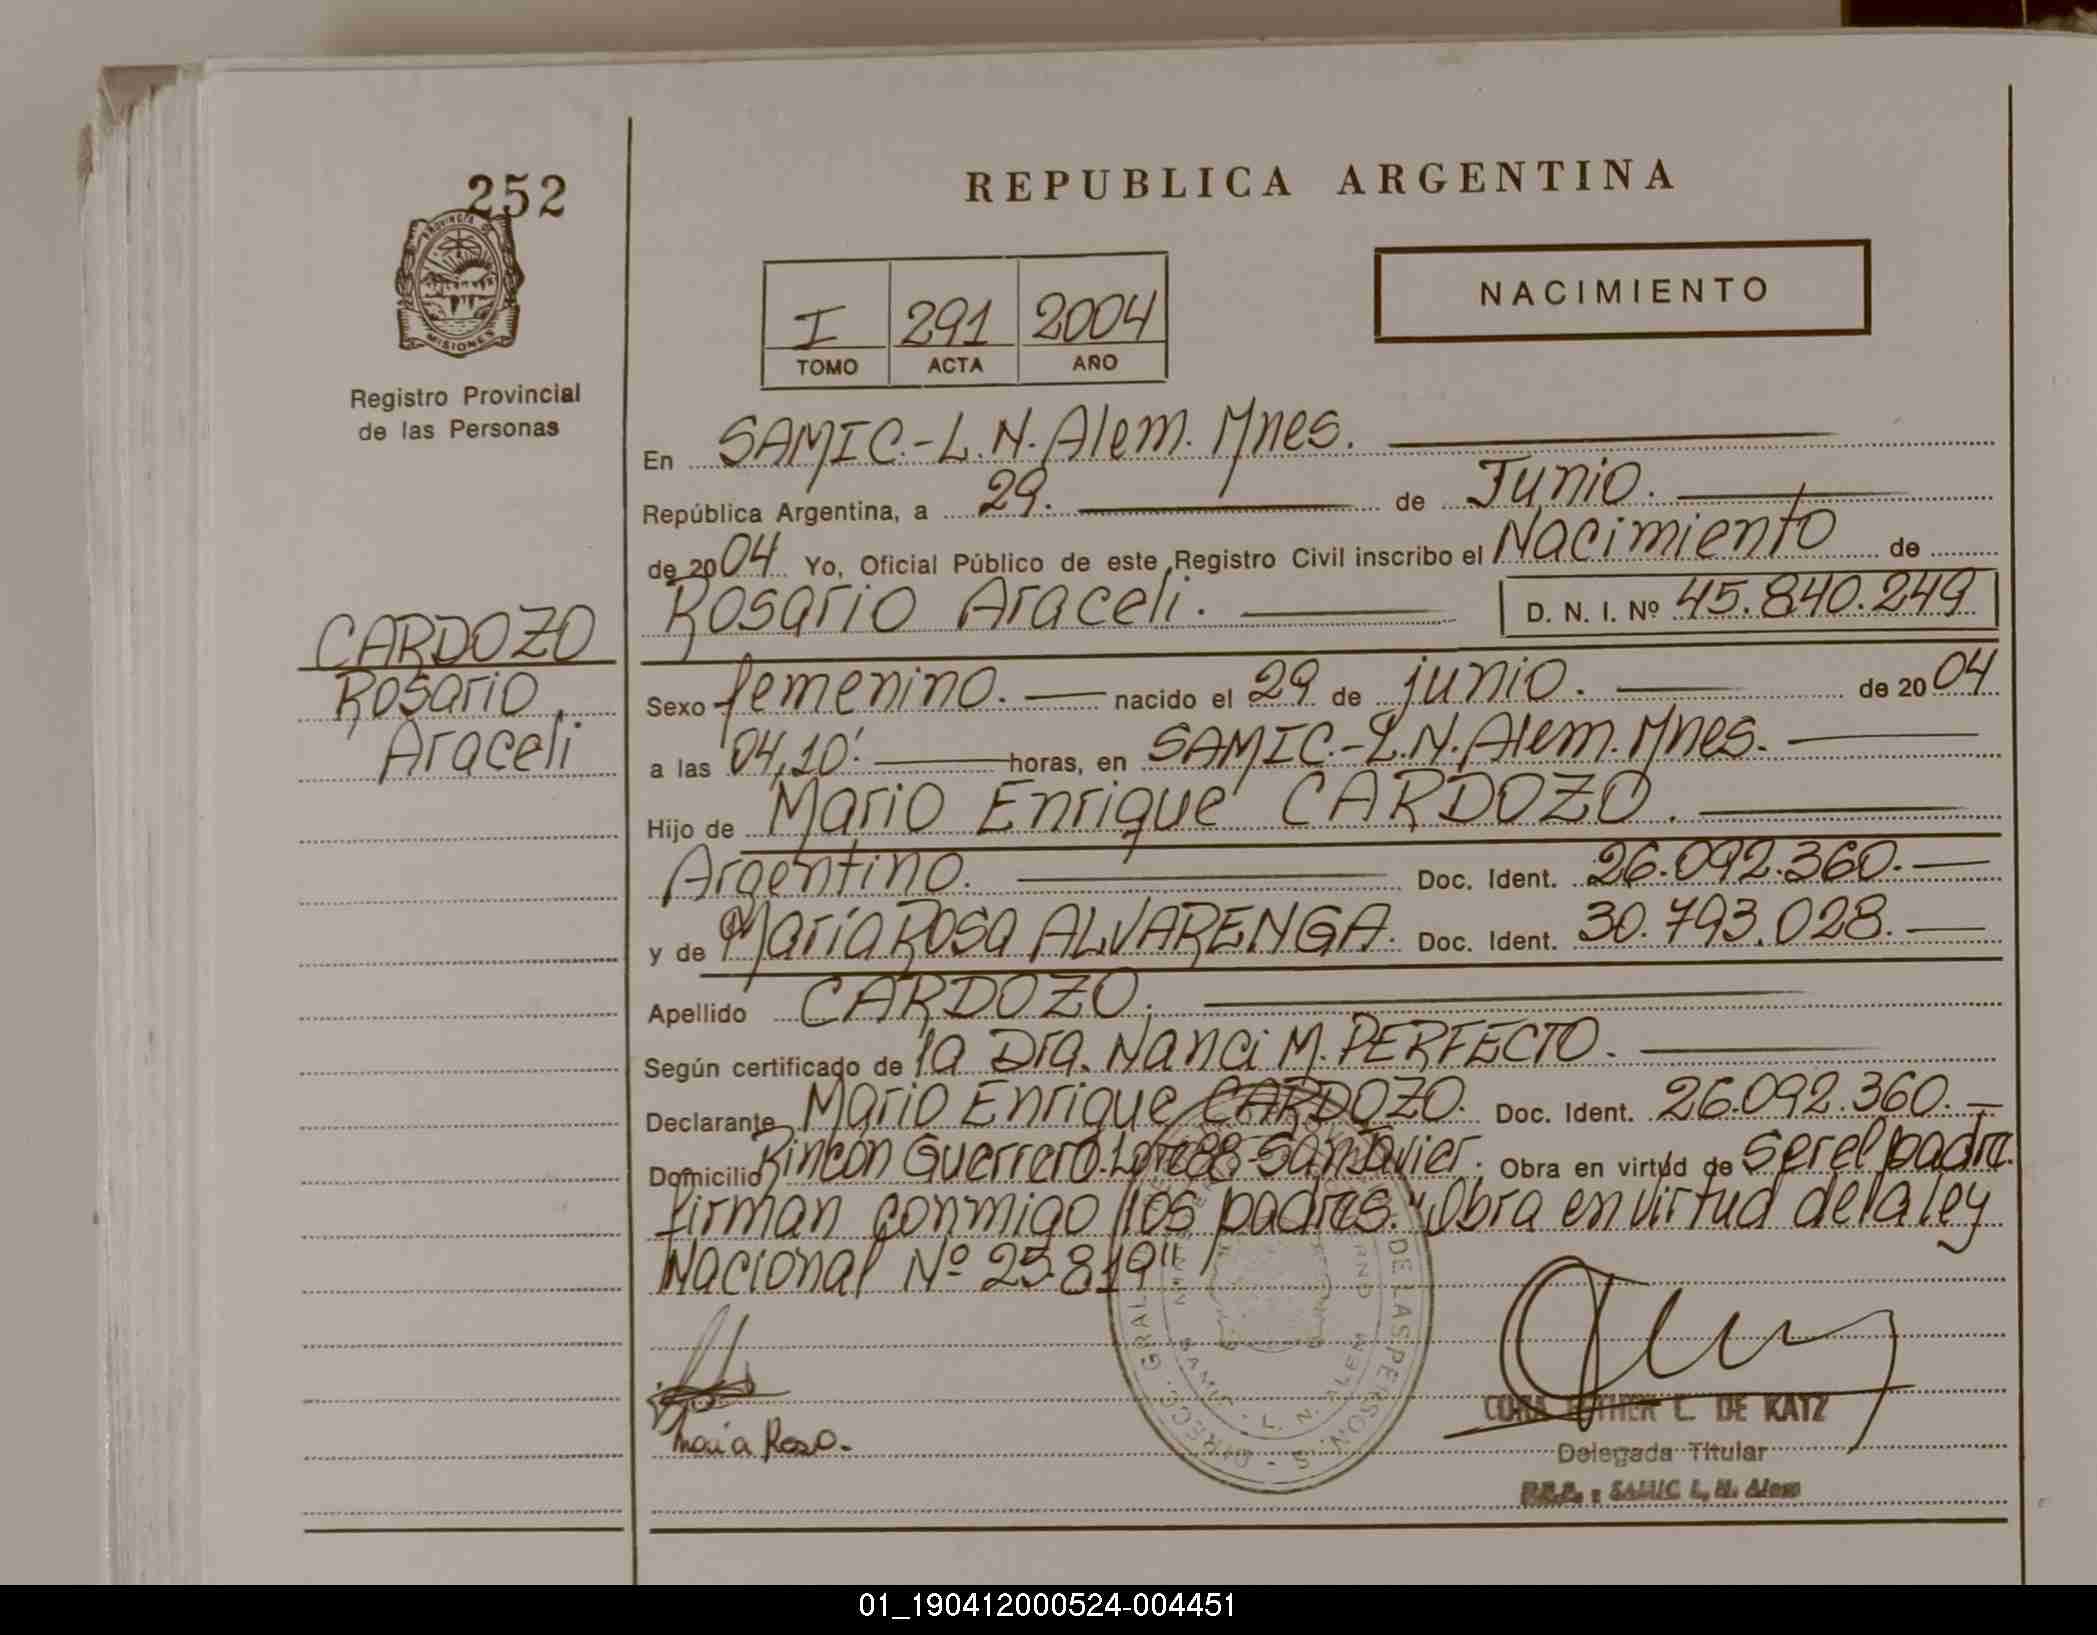 252
PROVINCIA DE
MISIONES
Registro Provincial
de las Personas
CARDOZO
Rosario
Araceli
REPUBLICA ARGENTINA
NACIMIENTO
I 291 2004
TOMO ACTA AÑO
En SAMIC.-L.N.Alem.Mnes.
República Argentina, a 29. de Junio.
de 2004 Yo, Oficial Público de este Registro Civil inscribo el Nacimiento de
Rosario Araceli. D. N. I. Nº 45.840.249
Sexo femenino. nacido el 29 de junio. de 2004
a las 04,10' horas, en SAMIC.-L.N.Alem.Mnes.
Hijo de Mario Enrique CARDOZO.
Argentino. Doc. Ident. 26.092.360.
y de María Rosa ALVARENGA. Doc. Ident. 30.793.028.
Apellido CARDOZO.
Según certificado de la Dra. Nanci M. PERFECTO.
Declarante Mario Enrique CARDOZO. Doc. Ident. 26.092.360.
Domicilio Rincón Guerrero.Lote 88-San Javier. Obra en virtud de ser el padre.
firman conmigo los padres. "Obra en virtud de la ley
Nacional Nº 25.819"
Maria Rosa.
DE LAS PERSONAS
SAMIC - L. N. ALEM
DIRECC. GRAL.
CORA ESTHER C. DE KATZ
Delegada Titular
SAMIC L. N. Alem
01_190412000524-004451